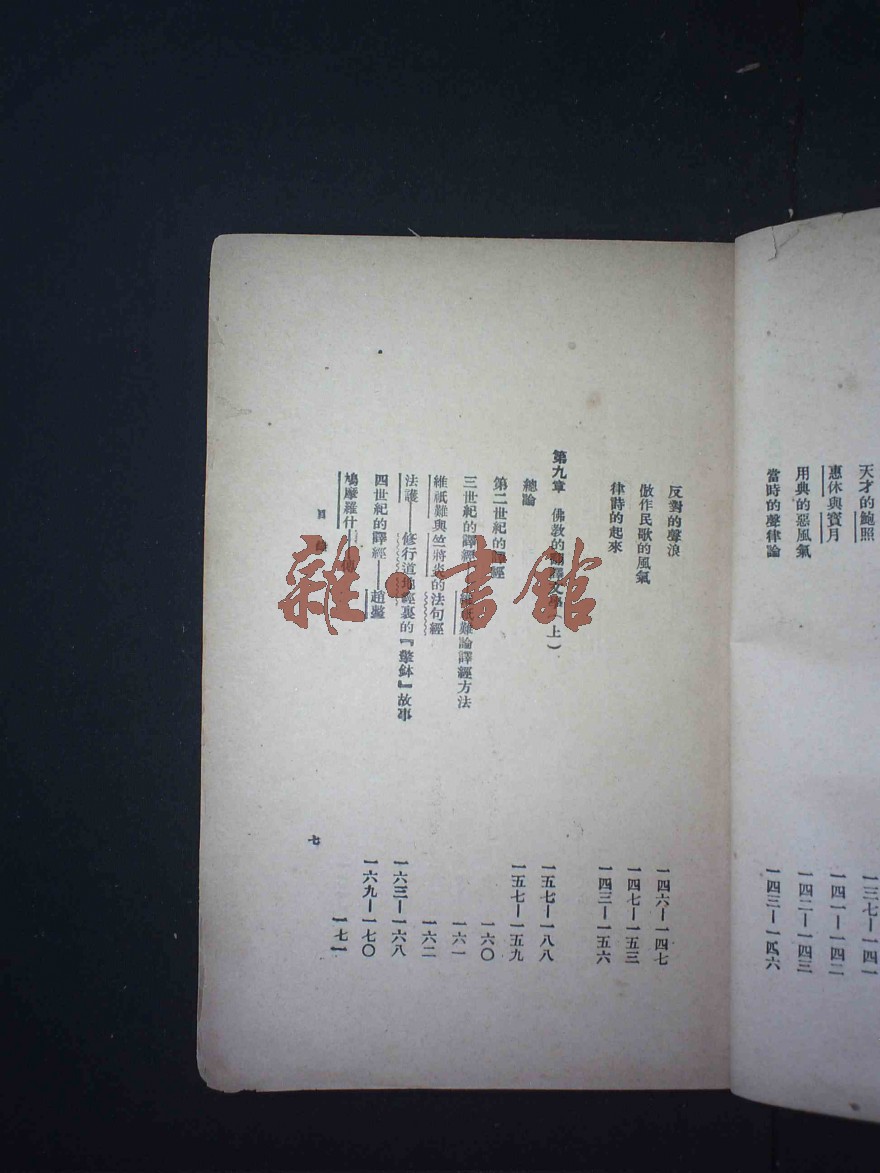 天才的鮑照
一三七—一四一
惠休與寶月
一四一—一四二
用典的惡風氣
一四二—一四三
當時的聲律論
一四三—一四六
反對的聲浪
一四六—一四七
倣作民歌的風氣
一四七—一五三
律詩的起來
一四三—一五六
第九章 佛教的翻譯文學(上)
一五七—一八八
總論
一五七—一五九
第二世紀的譯經
一六〇
三世紀的譯經——維祇難論譯經方法
一六一
維祇難與竺將炎的法句經
一六二
法護——修行道地經裏的『擎鉢』故事
一六三—一六八
四世紀的譯經——趙整
一六九—一七〇
鳩摩羅什——傳
一七一
目錄
七
雜·書館